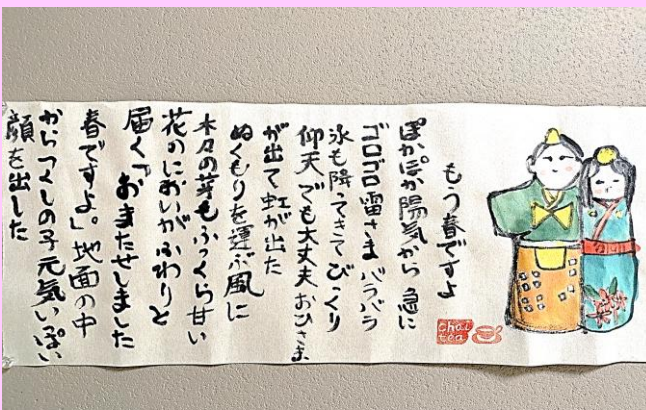 もう春ですよ
ぽかぽか陽気から 急に
ゴロゴロ雷さま バラバラ
氷も降ってきて びっくり
仰天 でも大丈夫 おひさま
が出て虹が出た
ぬくもりを運ぶ風に
木々の芽もふっくら甘い
花のにおいがふわりと
届く「おまたせしました
春ですよ。」地面の中
からつくしの子元気いっぱい
顔を出した
chai
tea